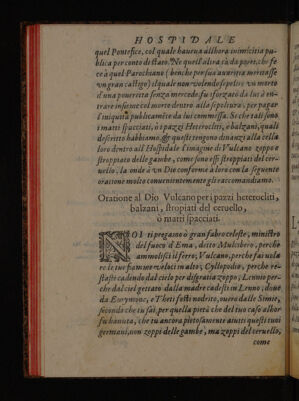 HOSPIDALE
quel Pontefice, col quale haueua allhora inimicitia pu-
blica per conto di stato. Ne quell'altra è da porre, che fe
ce à quel Parochiano (benche per sua auaritia meritasse
un gran castigo) il quale non volendo sepelire un morto
d'una pouertità senza mercede, fu sforzato da lui à en-
trare insieme col morto dentro alla sepoltura, per pagar
l'iniquità publicamente da lui commessa. Se che tali sono
i matti spacciati, ò i pazzi Heterocliti, è balzani, quali
descritto habbiamo, & questi tengono dinanzi alla cella
loro dentro all'Hospidale l'imagine di Vulcano zoppo e
stroppiato delle gambe, come sono essi stroppiati del cer-
uello, la onde à vn Dio conforme à loro con la seguente
oratione molto conuenientemente gli raccomandiamo.
Oratione al Dio Vulcano per i pazzi heterocliti,
balzani, stropiati del ceruello,
ò matti spacciati.
NOI ti pregamo ò gran fabro celeste, ministro
del fuoco d'Etna, detto Mulcibero, perche
ammollisci il ferro; Vulcano, perche fai vola
re le tue fiamme vela in alto; Cyllopodio, perche re-
stasti cadendo dal ciel per disgratia zoppo; Lennio per-
che dal ciel gettato dalla madre cadesti in Lenno; doue
da Eurynome, e Theti fosti nodrito, ouero dalle Simie,
secondo che tu sai, per quella pietà che del tuo caso alhor
fu hauuta, che tu ancora pietosamente aiuti questi tuoi
germani, non zoppi delle gambe, ma zoppi del ceruello,
come